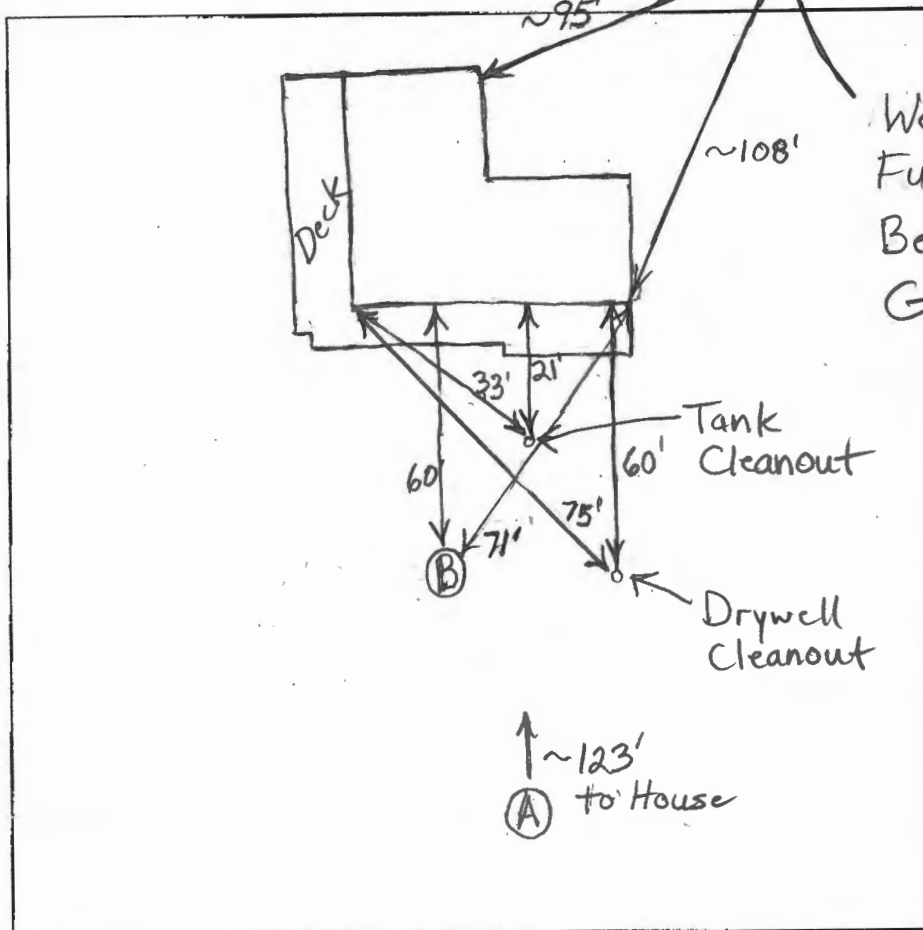 ~95'
~108'
Deck
33'
21'
Tank
Cleanout
60'
60
75'
71'
B
Drywell
Cleanout
~123'
to House
A